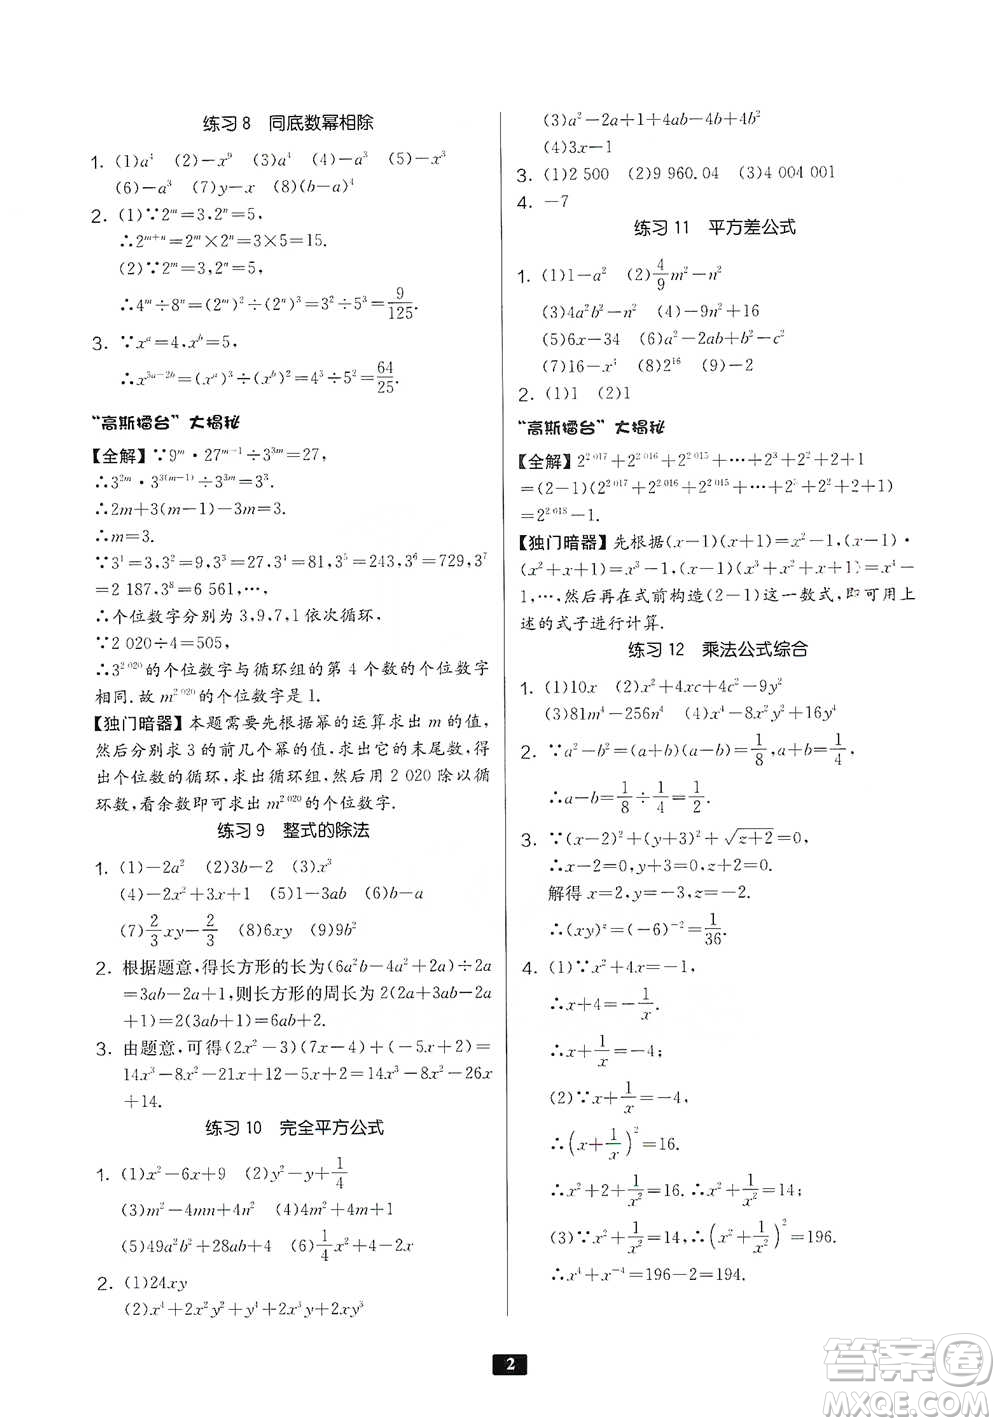 练习8 同底数幂相除
1. (1)a⁴ (2)-x⁹ (3)a⁴ (4)-a³ (5)-x³
(6)-a³ (7)y-x (8)(b-a)⁴
2. (1)∵2ᵐ=3,2ⁿ=5,
∴2ᵐ⁺ⁿ=2ᵐ×2ⁿ=3×5=15.
(2)∵2ᵐ=3,2ⁿ=5,
∴4ᵐ÷8ⁿ=(2ᵐ)²÷(2ⁿ)³=3²÷5³=9/125.
3. ∵xᵃ=4,xᵇ=5,
∴x³ᵃ⁻²ᵇ=(xᵃ)³÷(xᵇ)²=4³÷5²=64/25.
“高斯擂台”大揭秘
【全解】∵9ᵐ·27ᵐ⁻¹÷3³ᵐ=27,
∴3²ᵐ·3³⁽ᵐ⁻¹⁾÷3³ᵐ=3³.
∴2m+3(m-1)-3m=3.
∴m=3.
∵3¹=3,3²=9,3³=27,3⁴=81,3⁵=243,3⁶=729,3⁷
=2 187,3⁸=6 561,…,
∴个位数字分别为3,9,7,1依次循环.
∵2 020÷4=505,
∴3²⁰²⁰的个位数字与循环组的第4个数的个位数字
相同.故m²⁰²⁰的个位数字是1.
【独门暗器】本题需要先根据幂的运算求出m的值,
然后分别求3的前几个幂的值,求出它的末尾数,得
出个位数字的循环,求出循环组,然后用2 020除以循
环数,看余数即可求出m²⁰²⁰的个位数字.
练习9 整式的除法
1. (1)-2a² (2)3b-2 (3)x³
(4)-2x²+3x+1 (5)1-3ab (6)b-a
(7)2/3xy-2/3 (8)6xy (9)9b²
2. 根据题意,得长方形的长为(6a²b-4a²+2a)÷2a
=3ab-2a+1,则长方形的周长为2(3ab-2a+1+2a
+1)=2(3ab+1)=6ab+2.
3. 由题意,可得(2x²-3)(7x-4)+(-5x+2)=
14x³-8x²-21x+12-5x+2=14x³-8x²-26x
+14.
练习10 完全平方公式
1. (1)x²-6x+9 (2)y²-y+1/4
(3)m²-4mn+4n² (4)4a²+4ab+b²
(5)49a²b²+28ab+4 (6)1/4x²+4-2x
2. (1)24xy
(2)x⁴+2x²y²+y⁴+2x³y+2xy³
(3)a²-2a+1+4ab-4b+4b²
(4)3x-1
3. (1)2 500 (2)9 960.04 (3)4 004 001
4. -7
练习11 平方差公式
1. (1)1-a² (2)4/9m²-n²
(3)4a²b²-n² (4)-9n²+16
(5)6x-34 (6)a²-2ab+b²-c²
(7)16-x⁴ (8)2¹⁶ (9)-2
2. (1)1 (2)1
“高斯擂台”大揭秘
【全解】2²⁰¹⁷+2²⁰¹⁶+2²⁰¹⁵+…+2³+2²+2+1
=(2-1)(2²⁰¹⁷+2²⁰¹⁶+2²⁰¹⁵+…+2³+2²+2+1)
=2²⁰¹⁸-1.
【独门暗器】先根据(x-1)(x+1)=x²-1,(x-1)·
(x²+x+1)=x³-1,(x-1)(x³+x²+x+1)=x⁴-
1,…,然后再在式前构造(2-1)这一数式,即可用上
述的式子进行计算.
练习12 乘法公式综合
1. (1)10x (2)x²+4xc+4c²-9y²
(3)81m⁴-256n⁴ (4)x⁴-8x²y²+16y⁴
2. ∵a²-b²=(a+b)(a-b)=1/8,a+b=1/4,
∴a-b=1/8÷1/4=1/2.
3. ∵(x-2)²+(y+3)²+√(z+2)=0,
∴x-2=0,y+3=0,z+2=0.
解得x=2,y=-3,z=-2.
∴(xy)ᶻ=(-6)⁻²=1/36.
4. (1)∵x²+4x=-1,
∴x+4=-1/x.
∴x+1/x=-4;
(2)∵x+1/x=-4,
∴(x+1/x)²=16.
∴x²+2+1/x²=16.∴x²+1/x²=14;
(3)∵x²+1/x²=14,∴(x²+1/x²)²=196.
∴x⁴+x⁻⁴=196-2=194.
2
答案卷
MXQE.COM